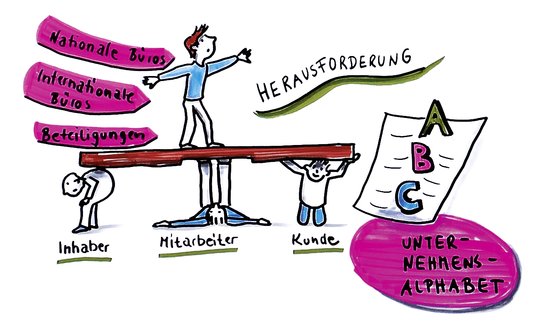 Nationale Büros
Internationale
Büros
Beteiligungen
HERAUSFORDERUNG
A
B
C
Inhaber
Mitarbeiter
Kunde
UNTER-
NEHMENS-
ALPHABET